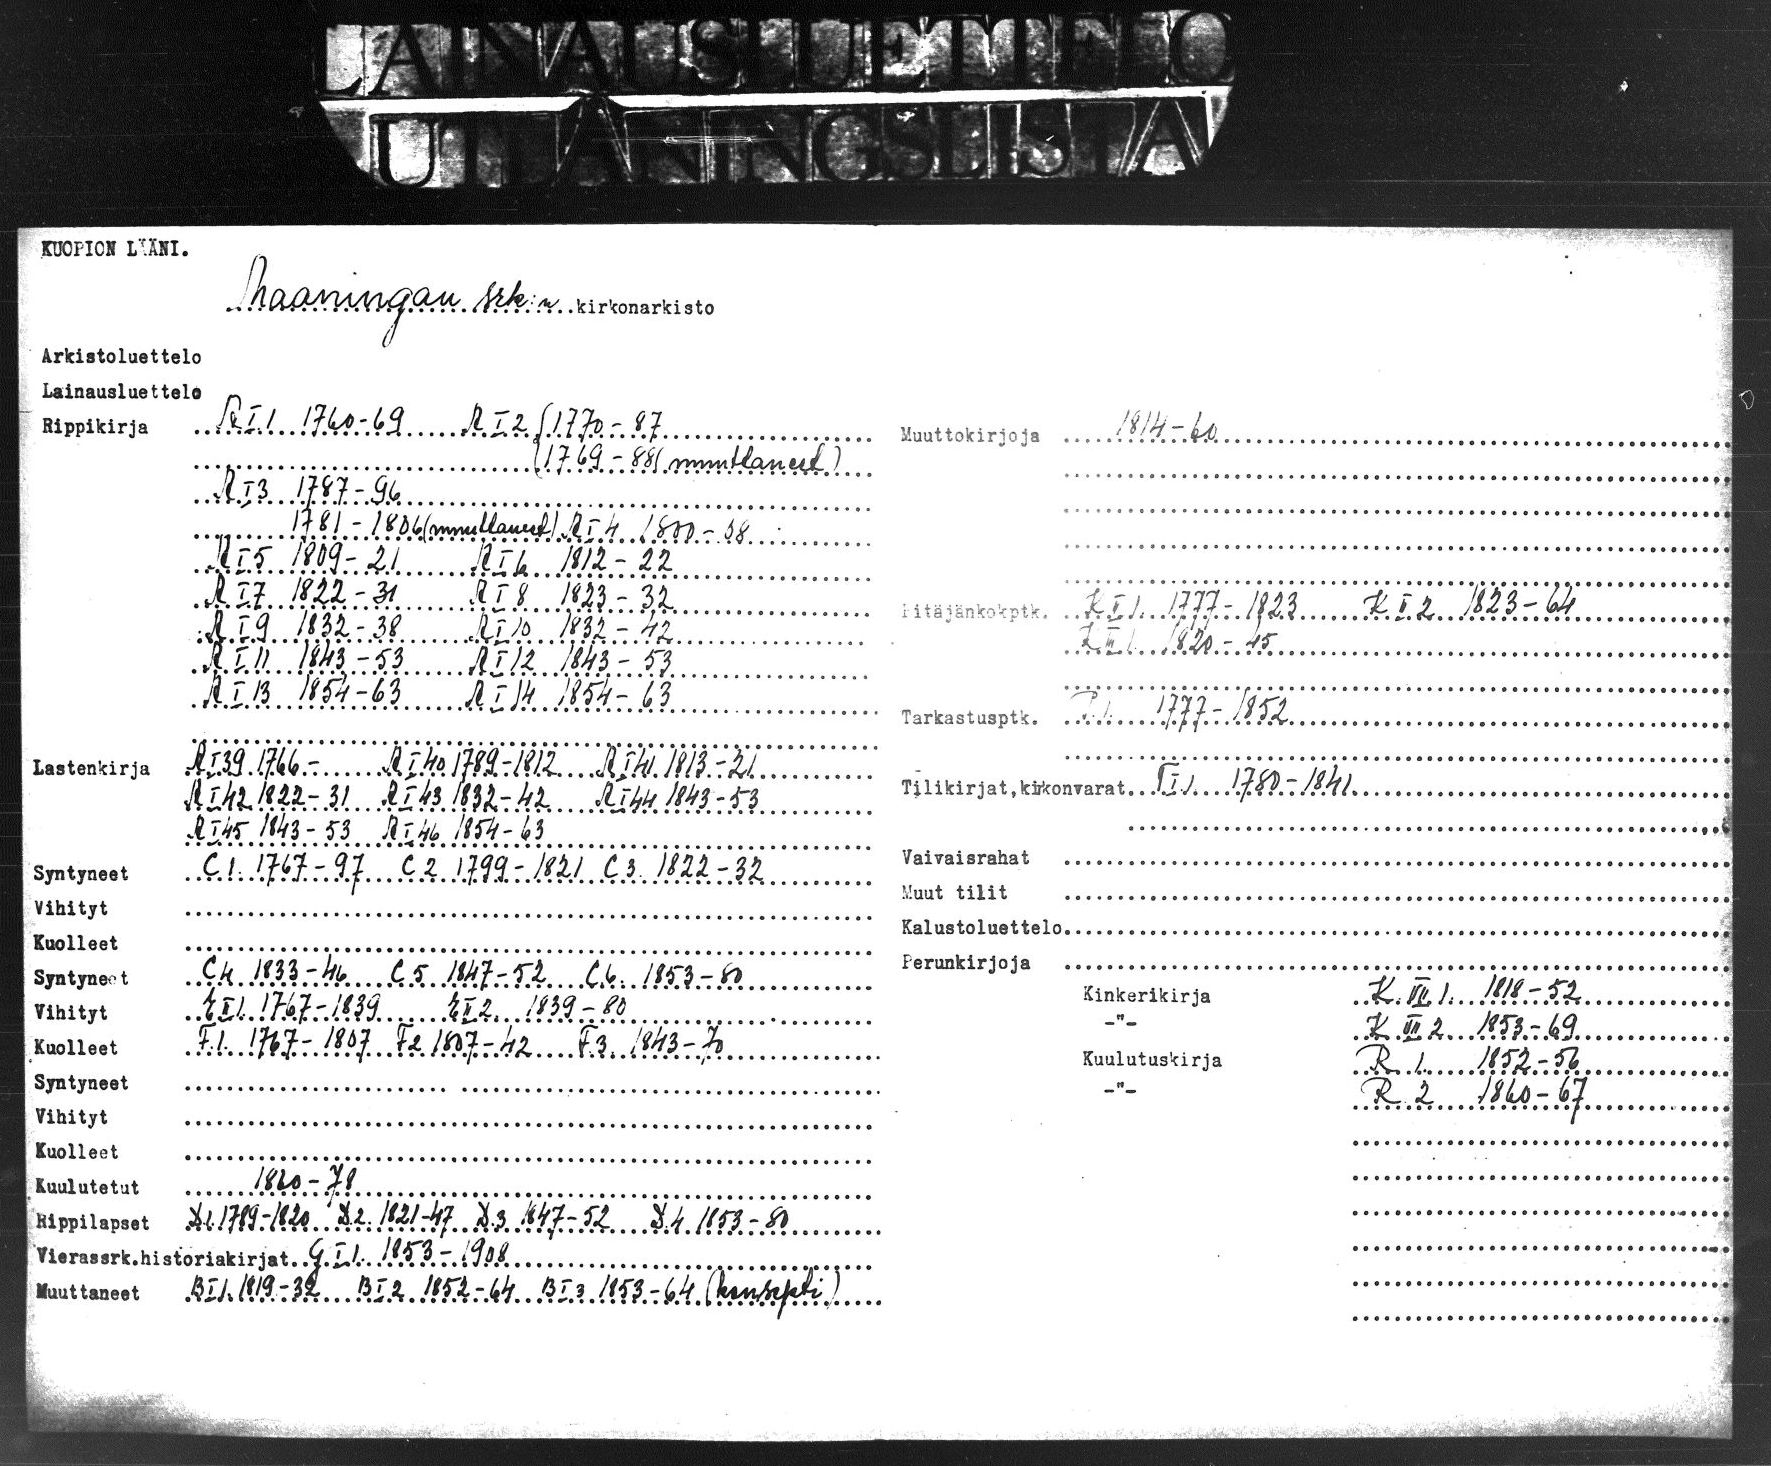 LAINAUSLUETTELO
UTLÅNINGSLISTA
KUOPION LÄÄNI.
Maaningan srk:n kirkonarkisto
Arkistoluettelo
Lainausluettelo
Rippikirja A I 1 1760-69 A I 2 (1770-87
(1769-88 (muuttaneet)
A I 3 1787-96
1781-1806 (muuttaneet) A I 4 1800-08
A I 5 1809-21 A I 6 1812-22
A I 7 1822-31 A I 8 1823-32
A I 9 1832-38 A I 10 1832-42
A I 11 1843-53 A I 12 1843-53
A I 13 1854-63 A I 14 1854-63
Lastenkirja A I 39 1766- A I 40 1789-1812 A I 41 1813-21
A I 42 1822-31 A I 43 1832-42 A I 44 1843-53
A I 45 1843-53 A I 46 1854-63
Syntyneet C 1. 1767-97 C 2 1799-1821 C 3. 1822-32
Vihityt
Kuolleet
Syntyneet C 4. 1833-46 C 5. 1847-52 C 6. 1853-80
Vihityt E I 1. 1767-1839 E I 2. 1839-80
Kuolleet F.1. 1767-1807 F 2 1807-42 F.3. 1843-70
Syntyneet
Vihityt
Kuolleet
Kuulutetut 1860-78
Rippilapset D.1. 1789-1820 D.2. 1821-47 D.3 1847-52 D.4. 1853-80
Vierassrk.historiakirjat G I 1. 1853-1908
Muuttaneet B I 1. 1819-32 B I 2 1852-64 B I 3 1853-64 (konsepti)
Muuttokirjoja 1814-60
Pitäjänkokptk. K I 1. 1777-1823 K I 2 1823-64
K III 1. 1820-45
Tarkastusptk. P.1. 1777-1852
Tilikirjat,kirkonvarat T I 1. 1780-1841
Vaivaisrahat
Muut tilit
Kalustoluettelo
Perunkirjoja
Kinkerikirja K VII 1. 1818-52
-"- K VII 2 1853-69
Kuulutuskirja R 1. 1852-56
-"- R 2 1860-67